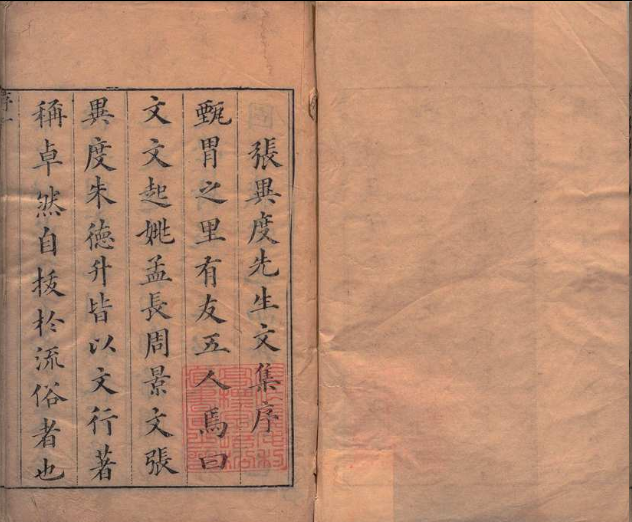 張異度先生文集序
甄胄之里有友五人焉曰
文文起姚孟長周景文張
異度朱德升皆以文行著
稱卓然自拔於流俗者也